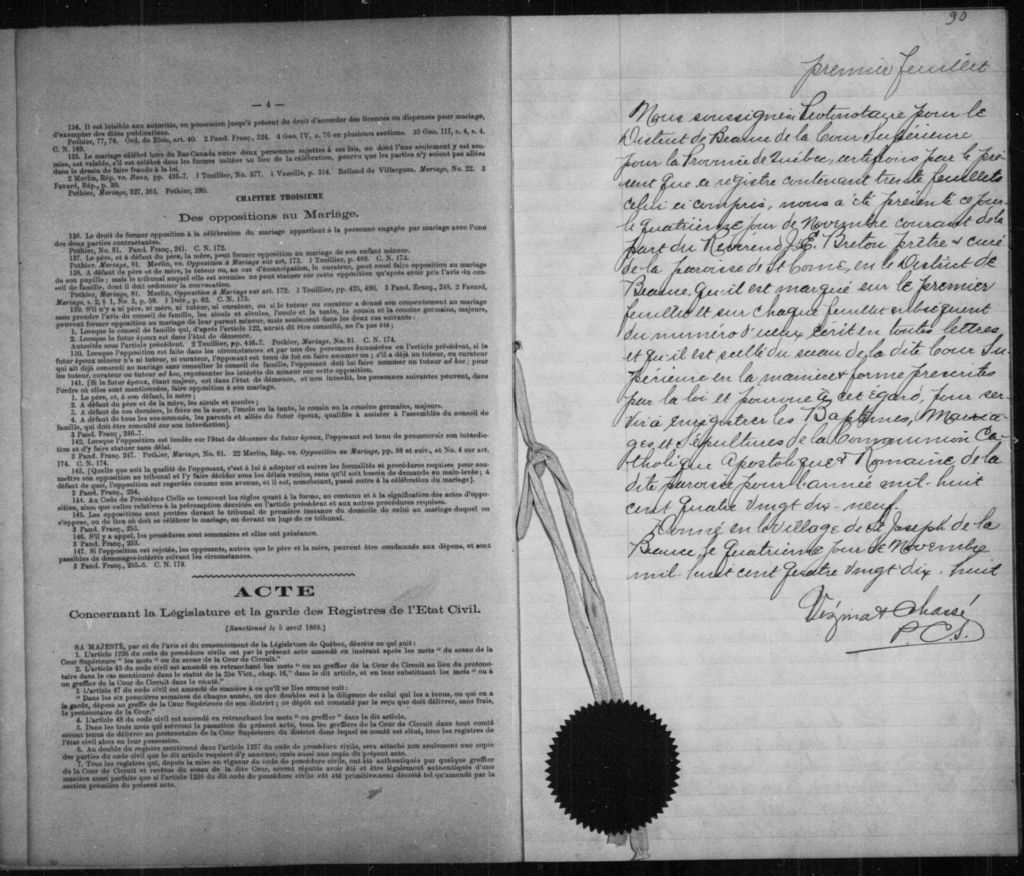 — 4 —
134. Il est loisible aux autorités, en possession jusqu'à présent du droit d'accorder des licences ou dispenses pour mariage,
d'exempter des dites publications.
Pothier, 77, 78. Ord. de Blois, art. 40. 2 Pand. Franç., 324. 4 Geo. IV, c. 76 en plusieurs sections. 35 Geo. III, c. 4, s. 4.
C. N. 169.
135. Le mariage célébré hors du Bas-Canada entre deux personnes sujettes à ses lois, ou dont l'une seulement y est soumise, est valable, s'il est célébré dans les formes usitées au lieu de la célébration, pourvu que les parties n'y soient pas allées
dans le dessin de faire fraude à la loi.
2 Merlin, Rép. vo. Bans, pp. 436-7. 1 Touillier, No. 577. 1 Vazeille, p. 314. Rolland de Villargues, Mariage, No. 22. 3
Favard, Rép., p. 30.
Pothier, Mariage, 327, 361. Pothier, 390.
CHAPITRE TROISIEME
Des oppositions au Mariage.
136. Le droit de former opposition à la célébration du mariage appartient à la personne engagée par mariage avec l'une
des deux parties contractantes.
Pothier, No. 81. Pand. Franç., 241. C. N. 172.
137. Le père, et à défaut du père, la mère, peut former opposition au mariage de son enfant mineur.
Pothier. Mariage, 81. Merlin, vo. Opposition à Mariage sur art. 173. 1 Touillier, p. 489. C. N. 173.
138. A défaut de père et de mère, le tuteur ou, au cas d'émancipation, le curateur, peut aussi faire opposition au mariage
de son pupille; mais le tribunal auquel elle est soumise ne peut statuer sur cette opposition qu'après avoir pris l'avis du conseil de famille, dont il doit ordonner la convocation.
Pothier, Mariage, 81. Merlin, Opposition à Mariage sur art. 172. 1 Touillier, pp. 425, 490. 3 Pand. Franç., 248. 2 Favard,
Mariage, s. 2, § 1, No. 3, p. 59. C. N. 175.
139. S'il n'y a ni père, ni mère, ni tuteur, ni curateur, ou si le tuteur ou curateur a donné son consentement au mariage
sans prendre l'avis du conseil de famille, les aïeuls et aïeules, l'oncle et la tante, le cousin et la cousine germains, majeurs,
peuvent former opposition au mariage de leur parent mineur, mais seulement dans les deux cas suivants:
1. Lorsque le conseil de famille qui, d'après l'article 122, aurait dû être consulté, ne l'a pas été;
2. Lorsque le futur époux est dans l'état de démence.
Autorités sous l'article précédent. 2 Touillier, pp. 416-7. Pothier, Mariage, No. 81. C. N. 174.
140. Lorsque l'opposition est faite dans les circonstances et par une des personnes énumérées en l'article précédent, si le
futur époux mineur n'a ni tuteur, ni curateur, l'opposant est tenu de lui en faire nommer un; s'il a déjà un tuteur, ou curateur
qui ait déjà consenti au mariage sans consulter le conseil de famille, l'opposant doit lui faire nommer un tuteur ad hoc; pour
les tuteur, curateur ou tuteur ad hoc, représenter les intérêts du mineur sur cette opposition.
141. [Si le futur époux, étant majeur, est dans l'état de démence, et non interdit, les personnes suivantes peuvent, dans
l'ordre où elles sont mentionnées, faire opposition à son mariage.
1. Le père, et, à son défaut, la mère;
2. A défaut du père et de la mère, les aïeuls et aïeules;
3. A défaut de ces derniers, le frère ou la sœur, l'oncle ou la tante, le cousin ou la cousine germains, majeurs.
4. A défaut de tous les sus-nommés, les parents et alliés du futur époux, qualifiés à assister à l'assemblée du conseil de
famille, qui doit être consulté sur son interdiction].
3 Pand. Franç., 246-7.
142. Lorsque l'opposition est fondée sur l'état de démence du futur époux, l'opposant est tenu de promouvoir son interdiction et d'y faire statuer sans délai.
3 Pand. Franç. 247. Pothier, Mariage, No. 81. 22 Merlin, Rép. vo. Opposition au Mariage, pp. 88 et suiv., et No. 4 sur art.
174. C. N. 174.
143. [Quelle que soit la qualité de l'opposant, c'est à lui à adopter et suivre les formalités et procédures requises pour soumettre son opposition au tribunal et l'y faire décider sous les délais voulus, sans qu'il soit besoin de demande en main-levée; à
défaut de quoi, l'opposition est regardée comme non avenue, et il est, nonobstant, passé outre à la célébration du mariage].
3 Pand. Franç., 254.
144. Au Code de Procédure Civile se trouvent les règles quant à la forme, au contenu et à la signification des actes d'opposition, ainsi que celles relatives à la péremption décrétée en l'article précédent et aux autres procédures requises.
145. Les oppositions sont portées devant le tribunal de première instance du domicile de celui au mariage duquel on
s'oppose, ou du lieu où doit se célébrer le mariage, ou devant un juge de ce tribunal.
3 Pand. Franç., 253.
146. S'il y a appel, les procédures sont sommaires et elles ont préséance.
3 Pand. Franç., 253.
147. Si l'opposition est rejetée, les opposants, autres que le père et la mère, peuvent être condamnés aux dépens, et sont
passibles de dommages-intérêts suivant les circonstances.
3 Pand. Franç., 255-6. C. N. 179.
ACTE
Concernant la Législature et la garde des Registres de l'Etat Civil.
[Sanctionné le 5 avril 1869.]
SA MAJESTÉ, par et de l'avis et du consentement de la Législature de Québec, décrète ce qui suit:
1. L'article 1236 du code de procédure civile est par le présent acte amendé en insérant après les mots " du sceau de la
Cour Supérieure " les mots " ou du sceau de la Cour de Circuit."
2. L'article 45 du code civil est amendé en retranchant les mots " ou au greffier de la Cour de Circuit au lieu du protonotaire dans le cas mentionné dans le statut de la 25e Vict., chap. 16," dans le dit article, et en leur substituant les mots " ou à
un greffier de la Cour de Circuit dans le comté."
3 L'article 47 du code civil est amendé de manière à ce qu'il se lise comme suit:
" Dans les six premières semaines de chaque année, un des doubles est à la diligence de celui qui les a tenus, ou qui en a
la garde, déposé au greffe de la Cour Supérieure de son district; ce dépôt est constaté par le reçu que doit délivrer, sans frais,
le protonotaire de la Cour."
4. L'article 48 du code civil est amendé en retranchant les mots " ou greffier " dans le dit article.
5. Dans les trois mois qui suivront la passation du présent acte, tous les greffiers de la Cour de Circuit dans tout comté
seront tenus de délivrer au protonotaire de la Cour Supérieure du district dans lequel ce comté est situé, tous les registres de
l'état civil alors en leur possession.
6. Au double du registre mentionné dans l'article 1237 du code de procédure civile, sera attaché non seulement une copie
des parties du code civil que le dit article requiert d'y annexer, mais aussi une copie du présent acte.
7. Tous les registres qui, depuis la mise en vigueur du code de procédure civile, ont été authentiqués par quelque greffier
de la Cour de Circuit et revêtus du sceau de la dite Cour, seront réputés avoir été et être légalement authentiqués d'une
manière aussi parfaite que si l'article 1236 du dit code de procédure civile eût été primitivement décrété tel qu'amendé par la
section première du présent acte.
90
premier feuillet
Nous soussignés Protonotaire pour le
District de Beauce de la Cour Supérieure
pour la Province de Québec, certifions par le pré-
sent que ce registre contenant trente feuillets
celui ci compris, nous a été présenté ce jour
le quatrième jour de Novembre courant de la
part du Révérend J. E. Breton prêtre & curé
de la paroisse de St Come, en le District de
Beauce, qu'il est marqué sur le premier
feuillet et sur chaque feuillet subséquent
du numéro d'iceux écrit en toutes lettres
et qu'il est scellé du sceau de la dite Cour Su-
périeure en la manière & forme prescrites
par la loi et pourvue à cet égard, pour ser-
vir à enregistrer les Baptêmes, Maria-
ges et Sépultures de la Communion Ca-
tholique Apostolique & Romaine, de la
dite paroisse pour l'année mil huit
cent quatre vingt dix-neuf.
Donné en le village de St Joseph de la
Beauce, le Quatrième jour de Novembre
mil huit cent quatre vingt dix-huit
Vézina & Chassé
P.C.S.